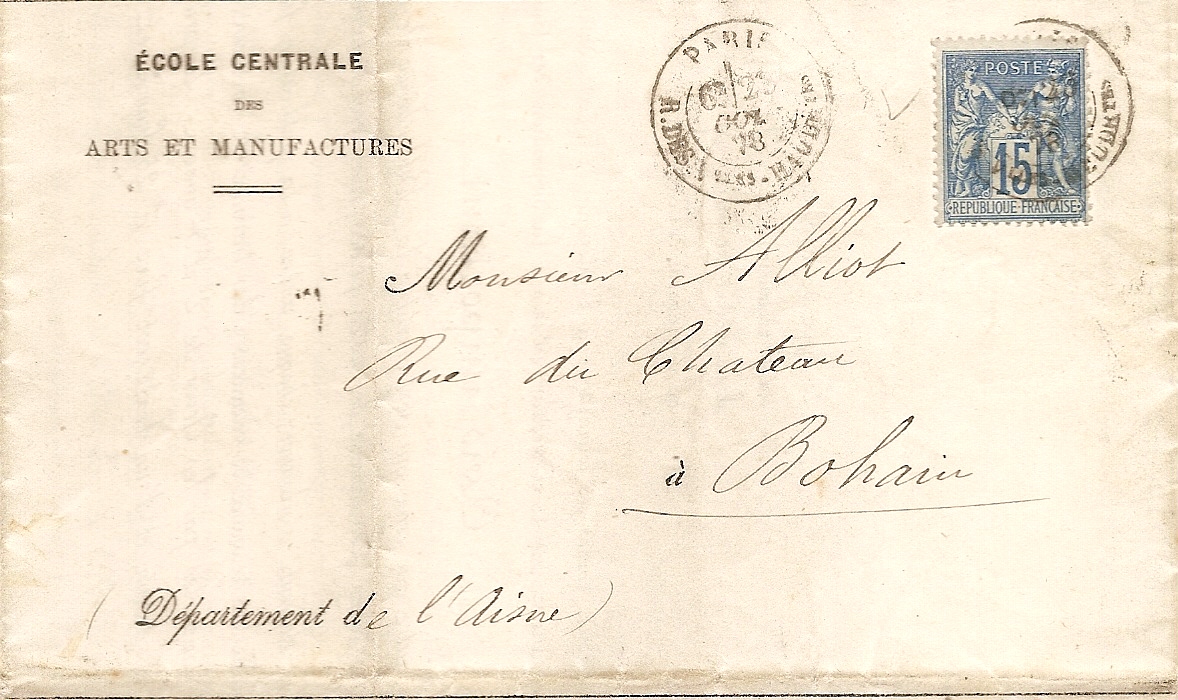 ÉCOLE CENTRALE
DES
ARTS ET MANUFACTURES
PARIS
R. DES HAUDTES
OCT.
78
POSTE
15
REPUBLIQUE FRANÇAISE
Monsieur Alliot
Rue du Chateau
à Bohain
(Département de l'Aisne)